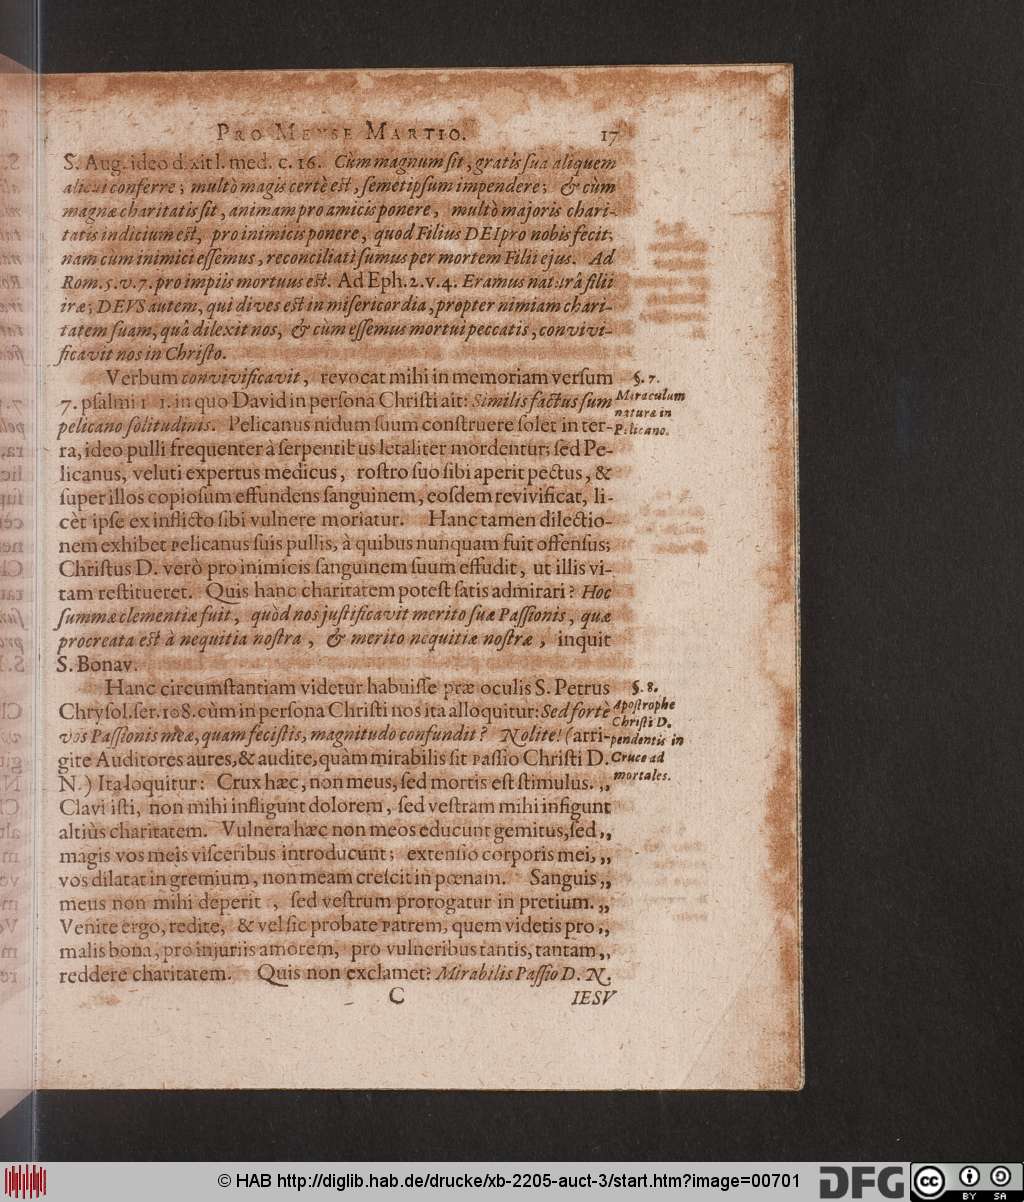 PRO MENSE MARTIO. 17
S. Aug. ideo dixit l. med. c. 16. Cùm magnum sit, gratis sua aliquem
alicui conferre; multò magis certè est, semetipsum impendere; & cùm
magnæ charitatis sit, animam pro amicis ponere, multò majoris chari-
tatis indicium est, pro inimicis ponere, quod Filius DEI pro nobis fecit;
nam cùm inimici essemus, reconciliati sumus per mortem Filii ejus. Ad
Rom. 5. v. 7. pro impiis mortuus est. Ad Eph. 2. v. 4. Eramus naturâ filii
iræ; DEVS autem, qui dives est in misericordia, propter nimiam chari-
tatem suam, quâ dilexit nos, & cùm essemus mortui peccatis, convivi-
ficavit nos in Christo.
Verbum convivificavit, revocat mihi in memoriam versum
§. 7.
Miraculum
naturæ in
Pelicano.
7. psalmi 1 1. in quo David in persona Christi ait: Similis factus sum
pelicano solitudinis. Pelicanus nidum suum construere solet in ter-
ra, ideo pulli frequenter à serpentibus letaliter mordentur; sed Pe-
licanus, veluti expertus medicus, rostro suo sibi aperit pectus, &
super illos copiosum effundens sanguinem, eosdem revivificat, li-
cèt ipse ex inflicto sibi vulnere moriatur. Hanc tamen dilectio-
nem exhibet Pelicanus suis pullis, à quibus nunquam fuit offensus;
Christus D. verò pro inimicis sanguinem suum effudit, ut illis vi-
tam restitueret. Quis hanc charitatem potest satis admirari? Hoc
summæ clementiæ fuit, quòd nos justificavit merito suæ Passionis, quæ
procreata est à nequitia nostra, & merito nequitiæ nostræ, inquit
S. Bonav.
Hanc circumstantiam videtur habuisse præ oculis S. Petrus
§. 8.
Apostrophe
Christi D.
pendentis in
Cruce ad
mortales.
Chrysol. ser. 108. cùm in persona Christi nos ita alloquitur: Sed fortè
vos Passionis meæ, quam fecistis, magnitudo confundit? Nolite! (arri-
gite Auditores aures, & audite, quàm mirabilis sit Passio Christi D.
N.) Ita loquitur: Crux hæc, non meus, sed mortis est stimulus. „
Clavi isti, non mihi infligunt dolorem, sed vestram mihi infigunt
altiùs charitatem. Vulnera hæc non meos educunt gemitus, sed „
magis vos meis visceribus introducunt; extensio corporis mei, „
vos dilatat in gremium, non meam crescit in pœnam. Sanguis „
meus non mihi deperit, sed vestrum prorogatur in pretium. „
Venite ergo, redite, & vel sic probate Patrem, quem videtis pro „
malis bona, pro injuriis amorem, pro vulneribus tantis, tantam „
reddere charitatem. Quis non exclamet? Mirabilis Passio D. N.
C IESV
© HAB http://diglib.hab.de/drucke/xb-2205-auct-3/start.htm?image=00701
DFG
cc BY SA